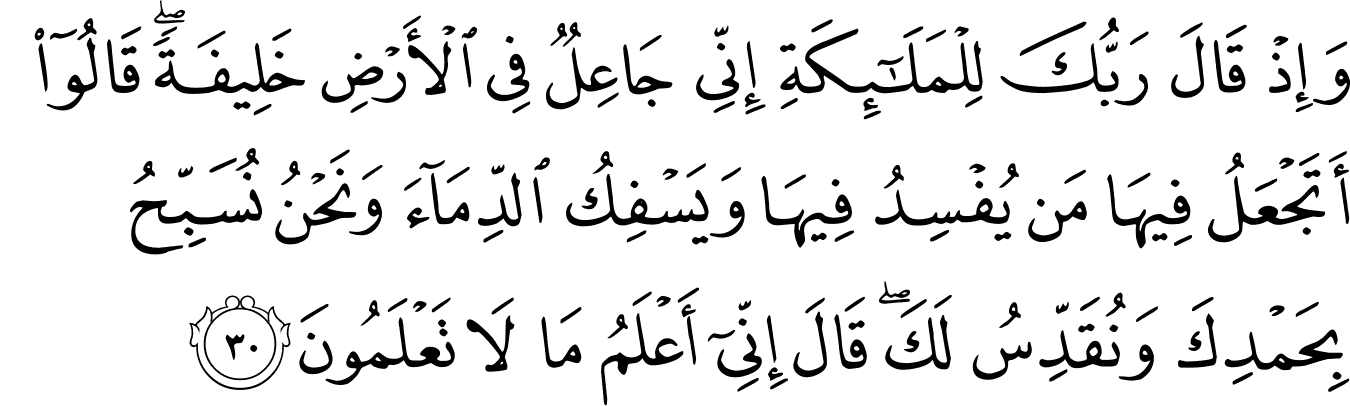 وَإِذْ قَالَ رَبُّكَ لِلْمَلَـٰٓئِكَةِ إِنِّى جَاعِلٌ فِى ٱلْأَرْضِ خَلِيفَةًۖ قَالُوٓا۟
أَتَجْعَلُ فِيهَا مَن يُفْسِدُ فِيهَا وَيَسْفِكُ ٱلدِّمَآءَ وَنَحْنُ نُسَبِّحُ
بِحَمْدِكَ وَنُقَدِّسُ لَكَۖ قَالَ إِنِّىٓ أَعْلَمُ مَا لَا تَعْلَمُونَ ٣٠